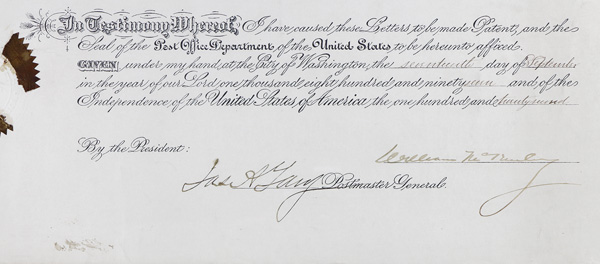 In Testimony Whereof, I have caused these Letters to be made Patent, and the
Seal of the Post Office Department of the United States to be hereunto affixed.
GIVEN under my hand, at the City of Washington, the seventeenth day of September
in the year of our Lord one thousand eight hundred and ninety seven and of the
Independence of the United States of America, the one hundred and twenty second
By the President:
William McKinley
Jas A Gary Postmaster General.